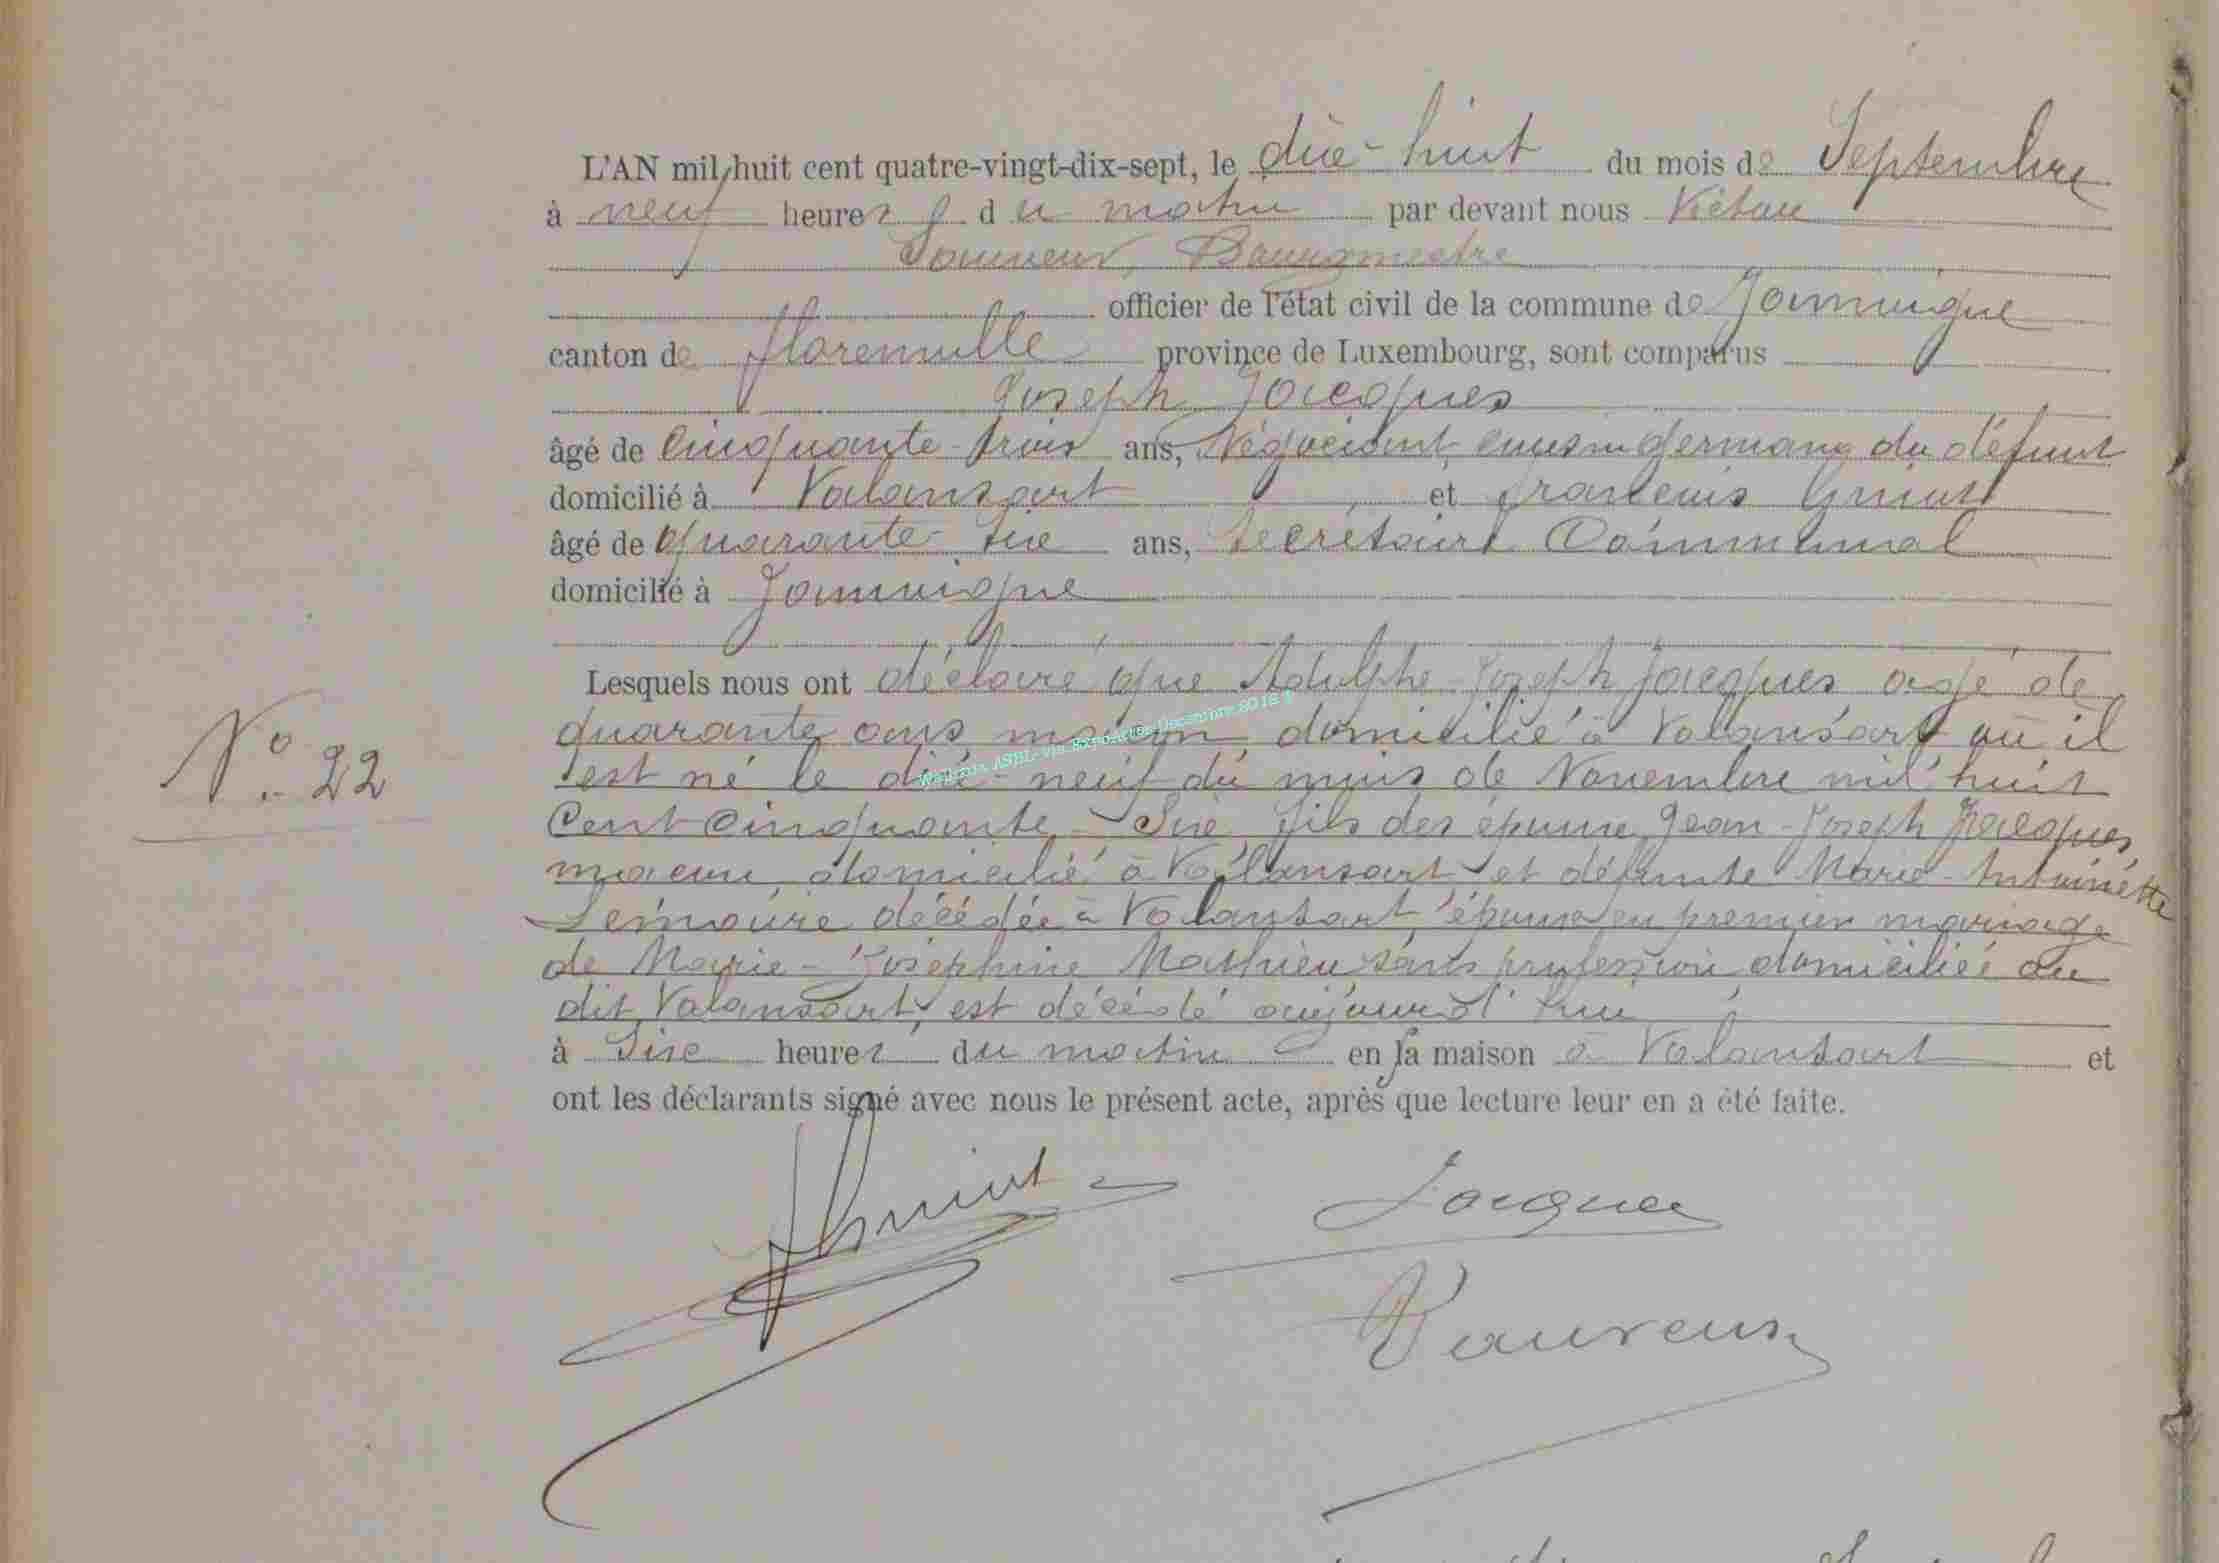 L'AN mil huit cent quatre-vingt-dix-sept, le dix-huit du mois de Septembre
à neuf heures du matin par devant nous
Bourgmestre
officier de l'état civil de la commune de Jamoigne
canton de Florenville province de Luxembourg, sont comparus
Joseph Jacques
âgé de Cinquante-trois ans, Négociant, cousin germain du défunt
domicilié à Valansart et François
âgé de quarante-six ans, Secrétaire Communal
domicilié à Jamoigne
Lesquels nous ont déclaré que Adolphe-Joseph Jacques agé de
No. 22
quarante ans, maçon, domicilié à Valansart où il
est né le dix-neuf du mois de Novembre mil huit
Cent Cinquante-Six, fils des époux Jean-Joseph Jacques,
maçon, domicilié à Valansart et défunte Marie-Antoinette
décédée à Valansart, époux en premier mariage
de Marie-Joséphine Mathieu, sans profession, domiciliée au
dit Valansart, est décédé aujourd'hui
à Six heures du matin en la maison à Valansart et
ont les déclarants signé avec nous le présent acte, après que lecture leur en a été faite.
Jacques